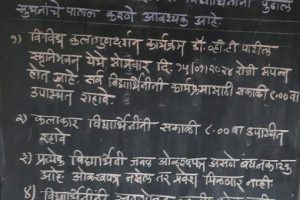 सुचनांचे पालन करणे आवश्यक आहे
१) विविध कलागुणदर्शन कार्यक्रम डॉ. व्ही. टी. पाटील
स्मृतिभवन येथे सोमवार दि. १५/०१/२०२४ रोजी संपन्न
होत आहे. सर्व विद्यार्थिनींनी कार्यक्रमासाठी सकाळी ९.०० वा
उपस्थित रहावे.
२) कलाकार विद्यार्थिनींनी सकाळी ८.०० वा उपस्थित
रहावे
३) प्रत्येक विद्यार्थिनी जवळ ओळखपत्र असणे बंधनकारक
आहे ओळखपत्र नसेल तर प्रवेश मिळणार नाही.
४) विद्यार्थिनींनी